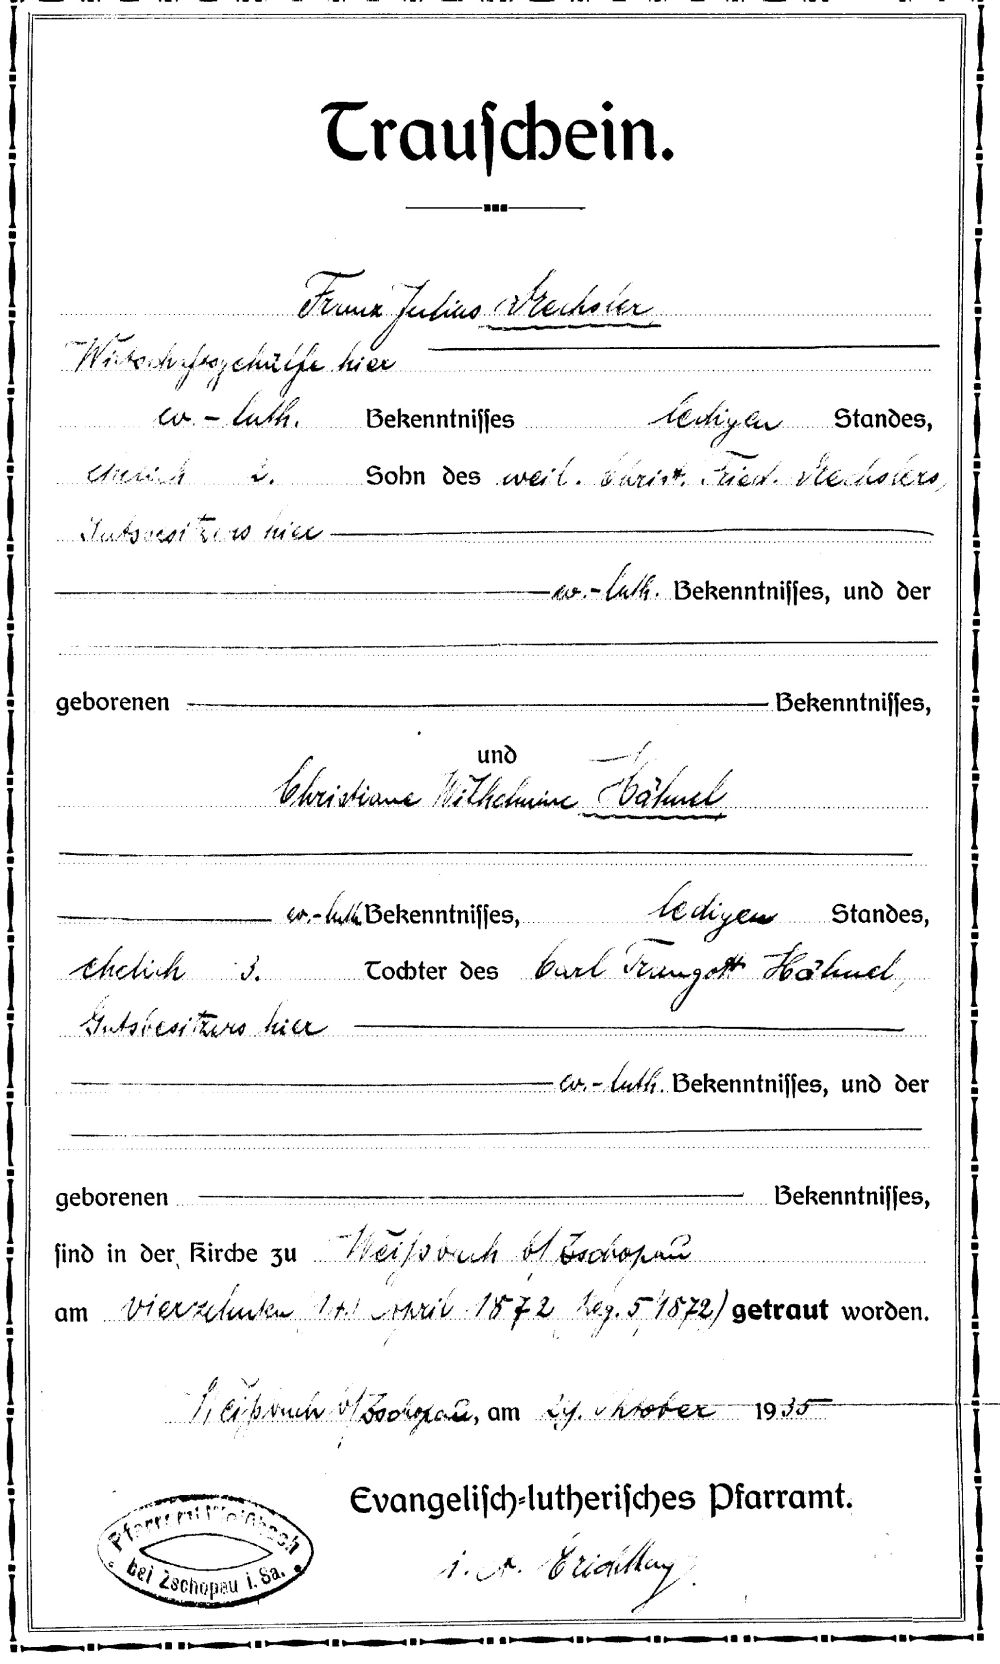 Trauschein.
Franz Julius Mechsler
Wirtschaftsgehülfe hier
ev.-luth. Bekenntnisses ledigen Standes,
ehelich 2. Sohn des weil. Christ. Fried. Mechslers,
Gutsbesitzers hier
ev.-luth. Bekenntnisses, und der
geborenen Bekenntnisses,
und
Christiane Wilhelmine Hähnel
ev.-luth. Bekenntnisses, ledigen Standes,
ehelich 3. Tochter des Carl Traugott Hähnel,
Gutsbesitzers hier
ev.-luth. Bekenntnisses, und der
geborenen Bekenntnisses,
sind in der Kirche zu Weißbach b/Zschopau
am vierzehnten 14. April 1872 Reg. 5/1872) getraut worden.
Weißbach b/Zschopau, am 29. Oktober 1935
Evangelisch-lutherisches Pfarramt.
i. A.
Pfarramt Weißbach
bei Zschopau i. Sa.